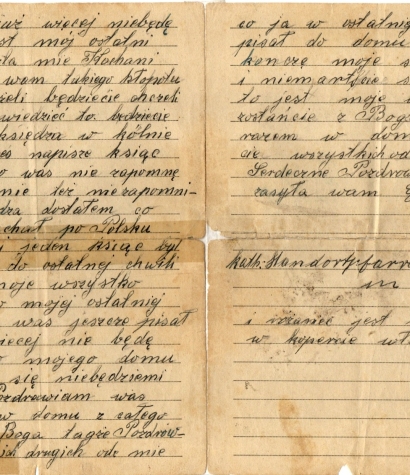 już więcej niebędę
st mój ostatni
ta mie Kochani
wam takiego kłopotu
żeli będziecie chcieli
wiedzieć to będziecie
księdza w kólnie
es napisze książ
o was nie zapomnę
nie też niezapomni-
dza dostałem co
chał po Polsku
i jeden książ był
do ostatnej chwili
moje wszystko
o mojej ostatnij
was jeszcze pisał
ięcej nie będę
o mojego domu
się niebędziemi
Pozdrawiam was
w domu z całego
Boga także Pozdrow-
drugich odz mie
co ja w ostatnij
pisał do domu
kończę moje s
i niemartwcie s
to jest moje
zostańcie z Bog
razem w dom
cie wszystkich od
Serdeczne Pozdrow
zasyła wam
kath: Standortpfarr
in
i różaniec jest
w kopercie wł